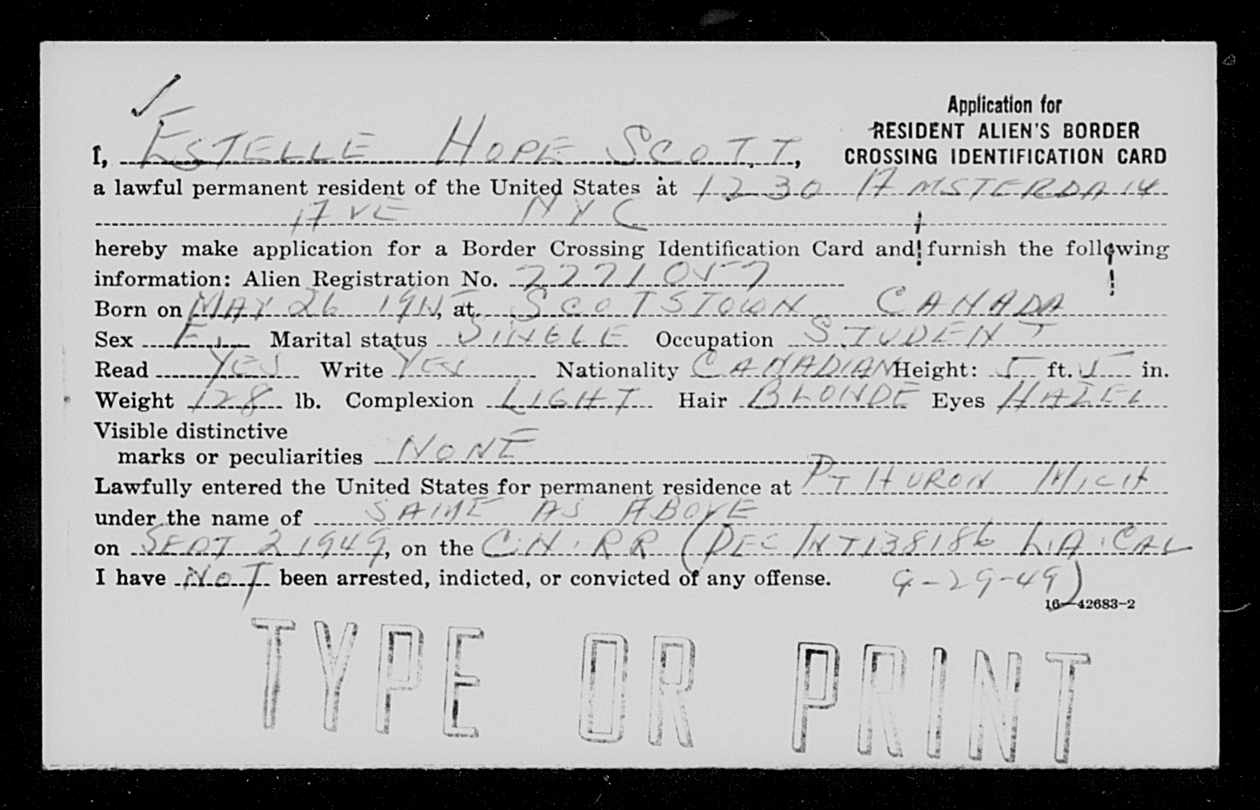 Application for
RESIDENT ALIEN'S BORDER
CROSSING IDENTIFICATION CARD
I, ESTELLE HOPE SCOTT,
a lawful permanent resident of the United States at 1230 AMSTERDAM
AVE NYC
hereby make application for a Border Crossing Identification Card and furnish the following
information: Alien Registration No.
Born on MAY 26, at SCOTSTOWN CANADA
Sex F. Marital status SINGLE Occupation STUDENT
Read YES Write YES Nationality CANADIAN Height: 5 ft. 5 in.
Weight 128 lb. Complexion LIGHT Hair BLONDE Eyes HAZEL
Visible distinctive
marks or peculiarities NONE
Lawfully entered the United States for permanent residence at PT HURON MICH
under the name of SAME AS ABOVE
on SEPT 2 1949, on the C.N.RR (DEC INT 138186 L.A. CAL
I have NOT been arrested, indicted, or convicted of any offense. 9-29-49)
16—42683-2
TYPE OR PRINT